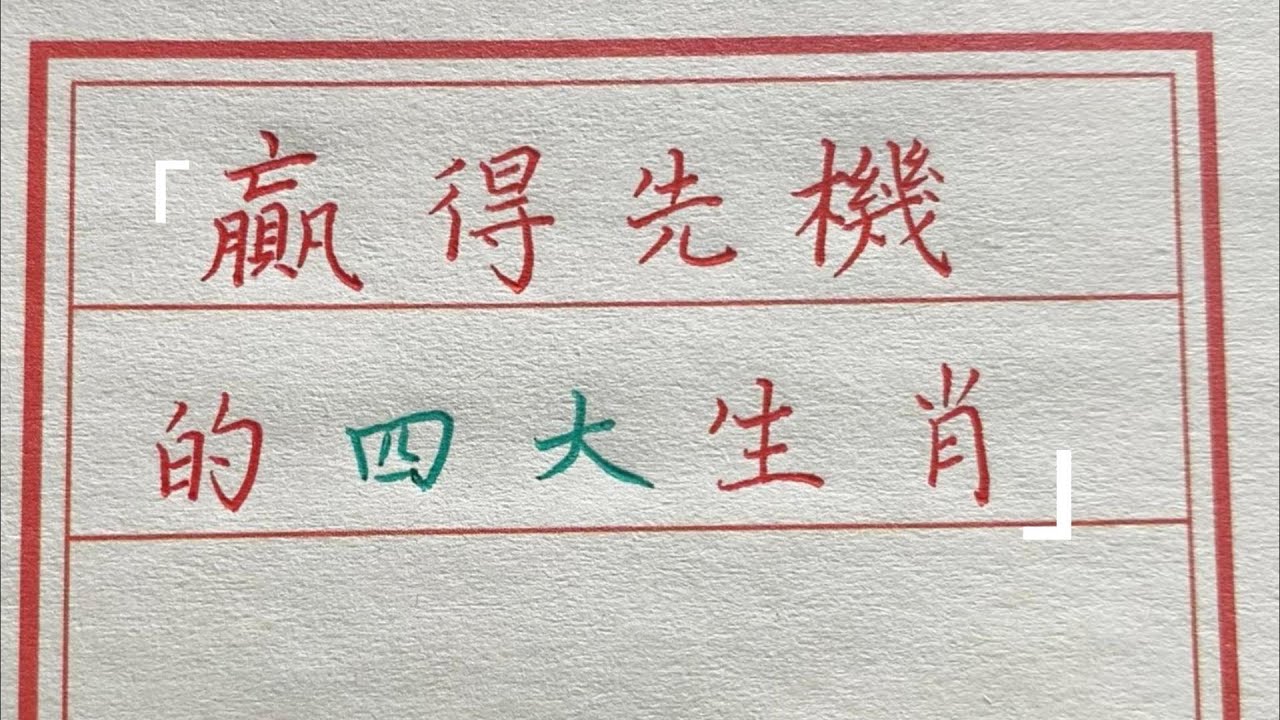 「贏得先機
的四大生肖」